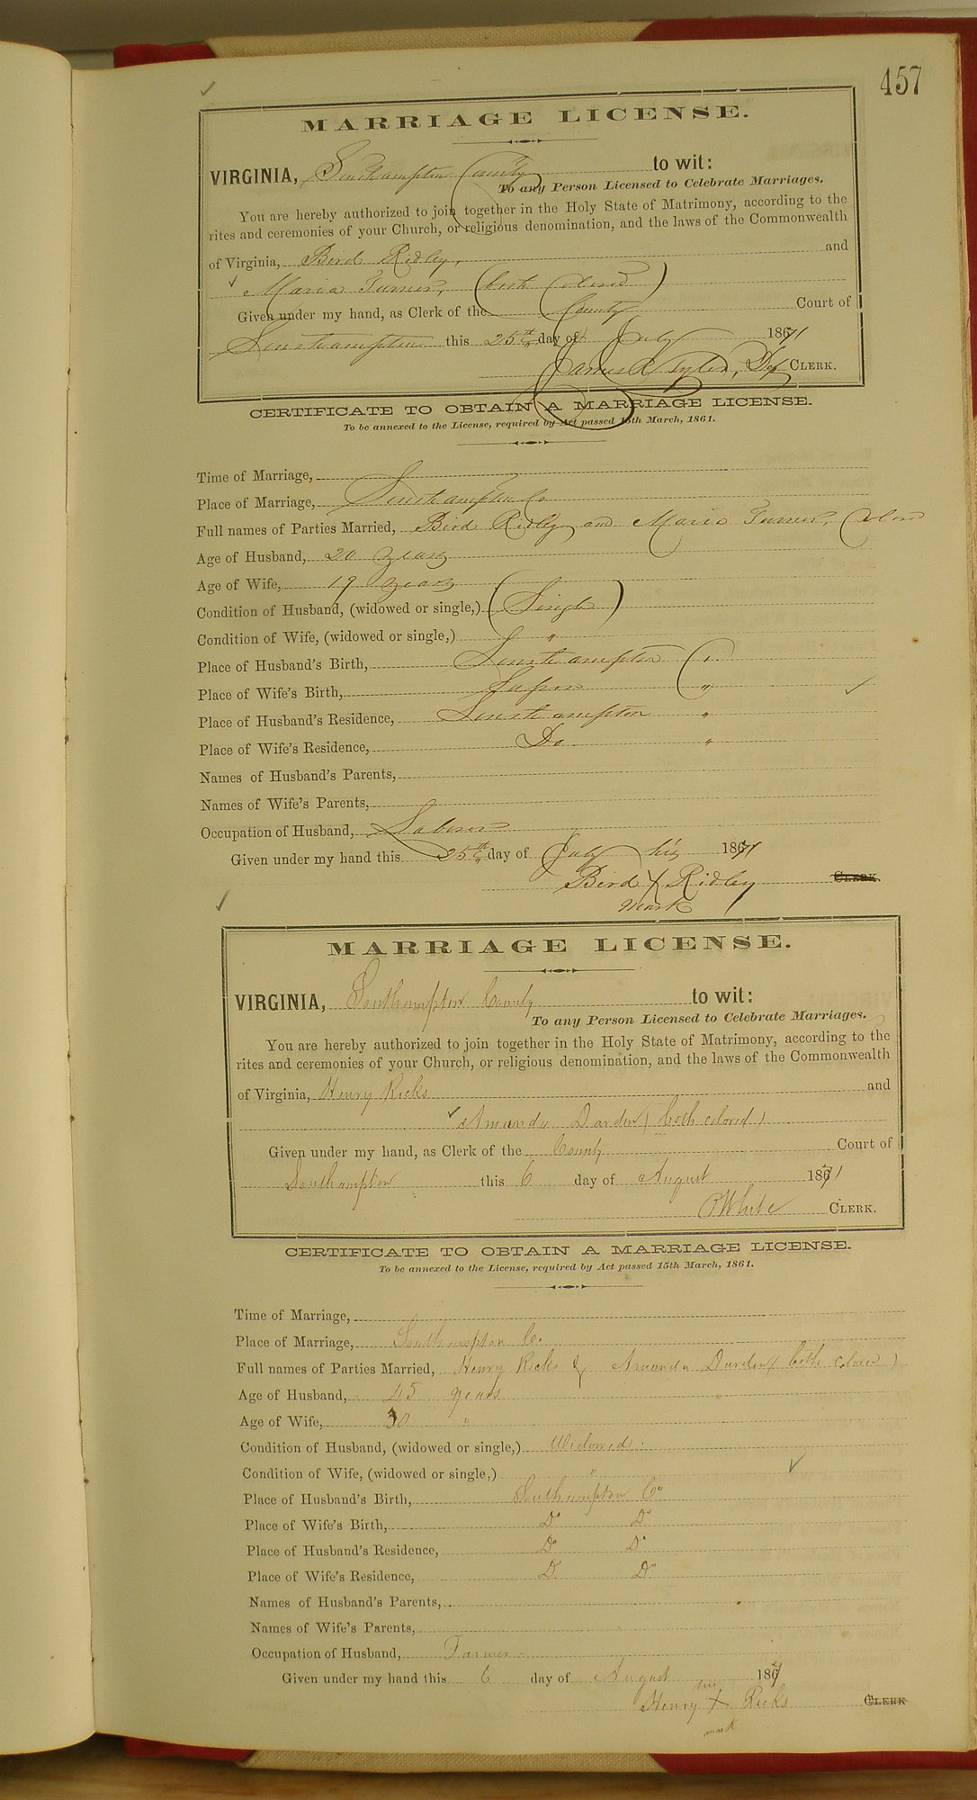 457
MARRIAGE LICENSE.
VIRGINIA, Southampton County to wit:
To any Person Licensed to Celebrate Marriages.
You are hereby authorized to join together in the Holy State of Matrimony, according to the
rites and ceremonies of your Church, or religious denomination, and the laws of the Commonwealth
of Virginia, Bird Ridley, and
Maria Turner, (both Colored)
Given under my hand, as Clerk of the County Court of
Southampton this 25th day of July 1871
James R Tyler, Dy CLERK.
CERTIFICATE TO OBTAIN A MARRIAGE LICENSE.
To be annexed to the License, required by Act passed 15th March, 1861.
Time of Marriage,
Place of Marriage, Southampton Co
Full names of Parties Married, Bird Ridley and Maria Turner, Colored
Age of Husband, 20 years
Age of Wife, 19 years
Condition of Husband, (widowed or single,) (Single)
Condition of Wife, (widowed or single,) "
Place of Husband's Birth, Southampton
Place of Wife's Birth, "
Place of Husband's Residence, Southampton "
Place of Wife's Residence, Do "
Names of Husband's Parents,
Names of Wife's Parents,
Occupation of Husband, Laborer
Given under my hand this 25th day of July 1871
his
Bird X Ridley CLERK.
mark
MARRIAGE LICENSE.
VIRGINIA, Southampton County to wit:
To any Person Licensed to Celebrate Marriages.
You are hereby authorized to join together in the Holy State of Matrimony, according to the
rites and ceremonies of your Church, or religious denomination, and the laws of the Commonwealth
of Virginia, Henry Ricks and
Amanda Darden (both colored)
Given under my hand, as Clerk of the County Court of
Southampton this 6 day of August 1871
White CLERK.
CERTIFICATE TO OBTAIN A MARRIAGE LICENSE.
To be annexed to the License, required by Act passed 15th March, 1861.
Time of Marriage,
Place of Marriage, Southampton Co.
Full names of Parties Married, Henry Ricks & Amanda Darden (both colored)
Age of Husband, 45 years
Age of Wife, 30 "
Condition of Husband, (widowed or single,) Widowed
Condition of Wife, (widowed or single,) "
Place of Husband's Birth, Southampton Co
Place of Wife's Birth, Do Do
Place of Husband's Residence, Do Do
Place of Wife's Residence, Do Do
Names of Husband's Parents,
Names of Wife's Parents,
Occupation of Husband, Farmer
Given under my hand this 6 day of August 1871
his
Henry X Ricks CLERK
mark